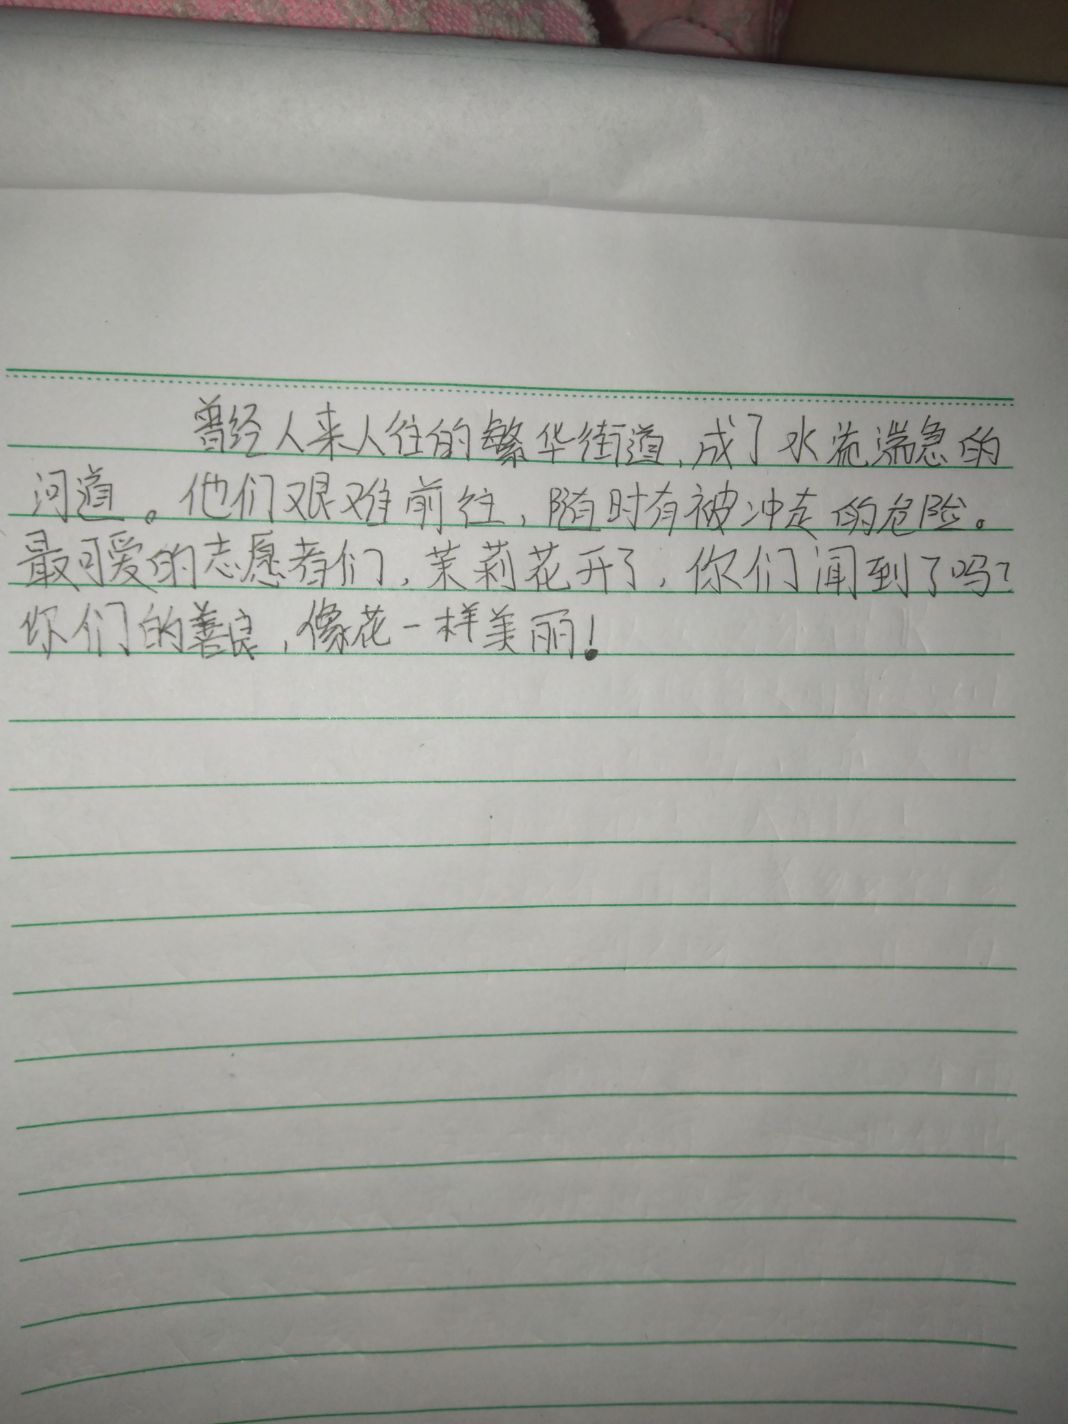 曾经人来人往的繁华街道,成了水流湍急的
河道。他们艰难前往,随时有被冲走的危险。
最可爱的志愿者们,茉莉花开了,你们闻到了吗?
你们的善良,像花一样美丽!